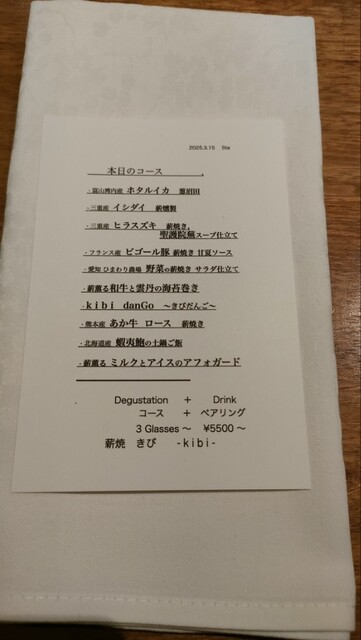 2025.3.15 Sta
本日のコース
・富山湾内産 ホタルイカ 葱沼田
・三重産 イシダイ 薪燻製
・三重産 ヒラスズキ 薪焼き、
聖護院蕪スープ仕立て
・フランス産 ビゴール豚 薪焼き 甘夏ソース
・愛知 ひまわり農場 野菜の薪焼き サラダ仕立て
・薪薫る和牛と雲丹の海苔巻き
・kibi danGo ～きびだんご～
・熊本産 あか牛 ロース 薪焼き
・北海道産 蝦夷鮑の土鍋ご飯
・薪薫る ミルクとアイスのアフォガード
Degustation + Drink
コース + ペアリング
3 Glasses～ ¥5500～
薪焼 きび -kibi-